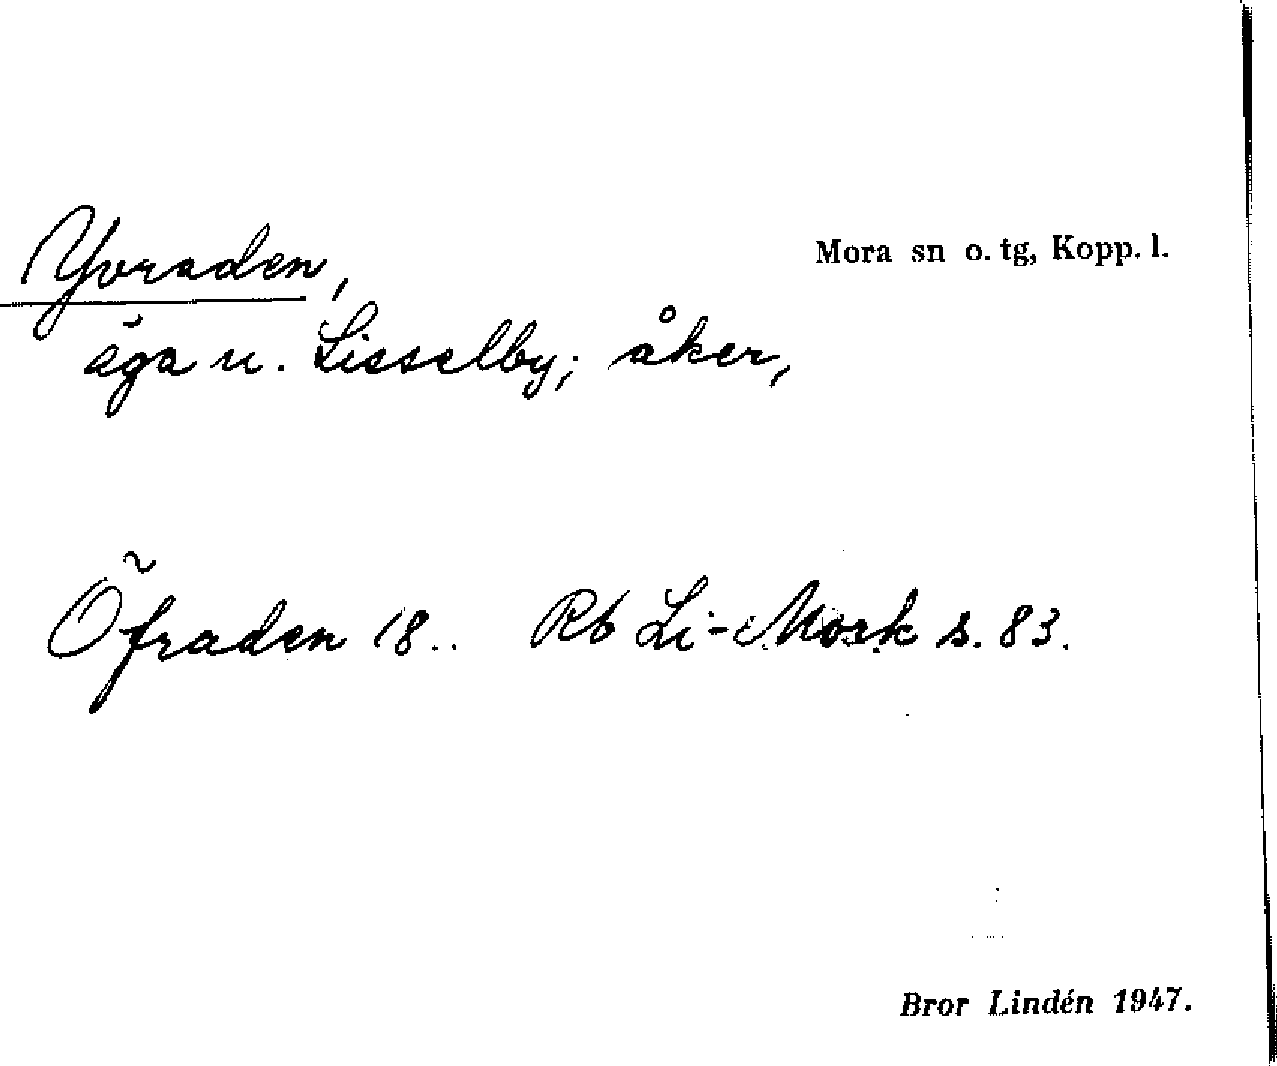 Yvraden,
Mora sn o. tg, Kopp. l.
äga u. Lisselby; åker,
Öfraden 18.. Rb Li-Mork s. 83.
Bror Lindén 1947.